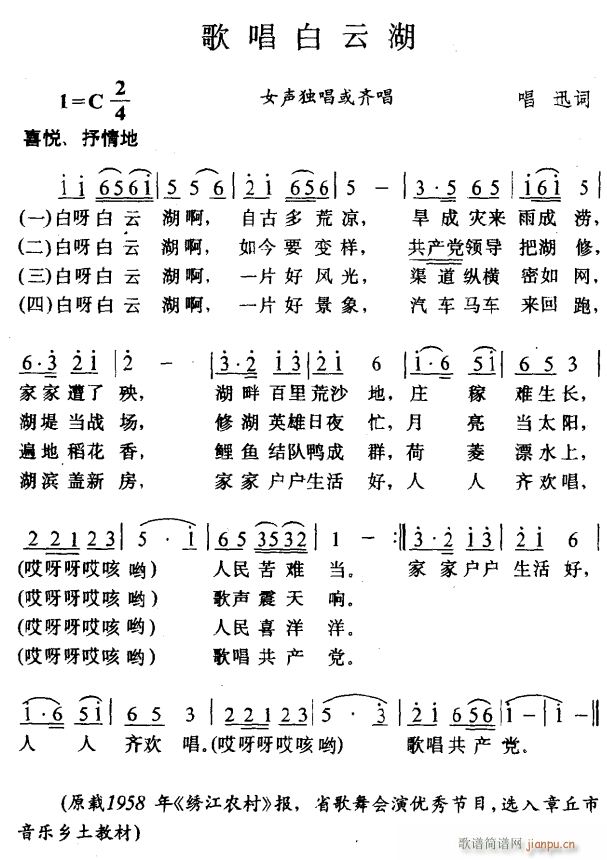 歌唱白云湖
1=C 2/4
女声独唱或齐唱
唱 迅词
喜悦、抒情地
i i 6561 | 5 5 6 | 2 1 656 | 5 － | 3·5 65 | 1 61 5 |
(一)白呀白云 湖啊, 自古多荒凉, 旱成灾来雨成涝,
(二)白呀白云 湖啊, 如今要变样, 共产党领导把湖修,
(三)白呀白云 湖啊, 一片好风光, 渠道纵横密如网,
(四)白呀白云 湖啊, 一片好景象, 汽车马车来回跑,
6·3 2 1 | 2 － | 3·2 1 3 | 2 1 6 | 1·6 5 1 | 6 5 3 |
家家遭了殃, 湖畔百里荒沙地,庄稼难生长,
湖堤当战场, 修湖英雄日夜忙,月亮当太阳,
遍地稻花香, 鲤鱼结队鸭成群,荷菱漂水上,
湖滨盖新房, 家家户户生活好,人人齐欢唱,
2 2123 | 5· 1 | 65 3532 | 1 － :‖ 3·2 13 | 21 6 |
(哎呀呀哎咳哟) 人民苦难当。 家家户户生活好,
(哎呀呀哎咳哟) 歌声震天响。
(哎呀呀哎咳哟) 人民喜洋洋。
(哎呀呀哎咳哟) 歌唱共产党。
1·6 51 | 65 3 | 22123 | 5· 3 | 21 656 | 1－ | 1－ ‖
人人齐欢唱。(哎呀呀哎咳哟) 歌唱共产党。
(原载1958年《绣江农村》报, 省歌舞会演优秀节目,选入章丘市
音乐乡土教材)
歌谱简谱网
jianpu.cn